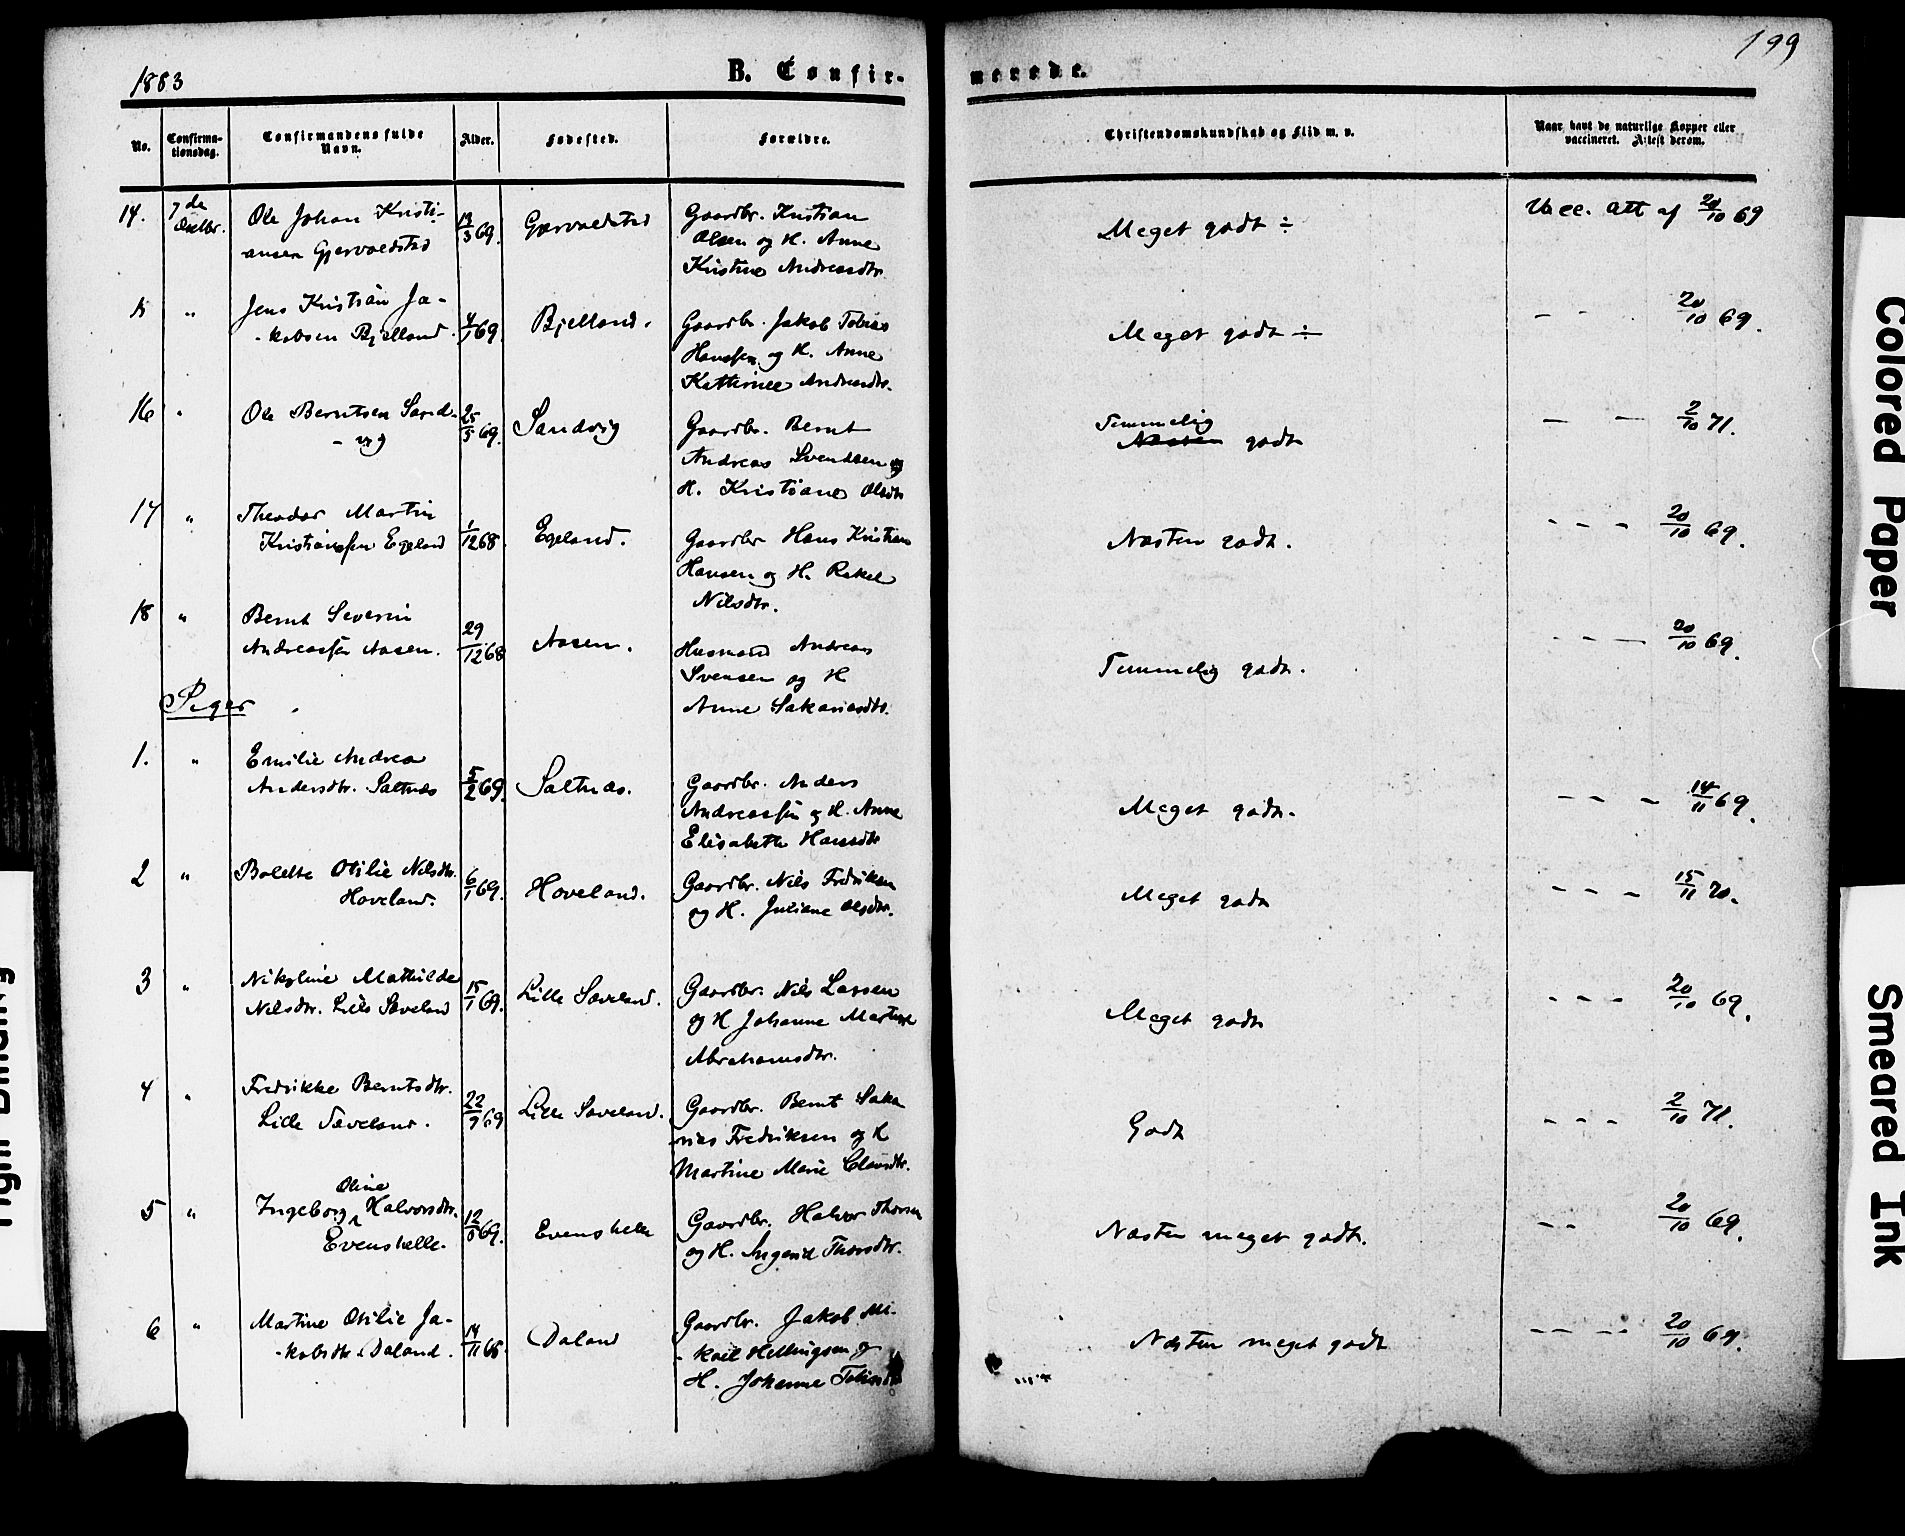 1883
B. Confir-
merede.
199
No.
Confirma-
tionsdag.
Confirmandens fulde
Navn.
Alder.
Fødested.
Forældre.
Christendomskundskab og Flid m. v.
Naar havt de naturlige Kopper eller
vaccineret. Attest derom.
14.
7de
Octbr.
Ole Johan Kristi-
ansen Gjervoldstad
13/3 69.
Gjervoldstad
Gaardbr. Kristian
Olsen og H. Anne
Kristine Andreasdtr.
Meget godt ÷
Vacc. att af 20/10 69
15
"
Jens Kristian Ja-
-kobsen Bjelland.
4/1 69.
Bjelland.
Gaardbr. Jakob Tobias
Hanssen og H. Anne
Kathrine Andreasdtr.
Meget godt ÷
- - 20/10 69.
16
"
Ole Berntsen Sand-
-vig
25/5 69.
Sandvig
Gaardbr. Bernt
Andreas Svendsen og
H. Kristiane Olsdtr
Temmelig
Næsten godt
- - 2/10 71.
17
"
Theodor Martin
Kristianssen Egeland
1/12 68.
Egeland.
Gaardbr Hans Kristian
Hansen og H. Rakel
Nilsdtr.
Næsten godt.
- - - 20/10 69.
18
"
Bernt Severin
Andreassen Aasen.
29/12 68
Aasen.
Husmand Andreas
Svensen og H
Anne Sakariasdtr.
Temmelig godt.
- - - 20/10 69.
Piger
1.
"
Emilie Andrea
Andersdtr. Saltnæs
5/2 69.
Saltnæs.
Gaardbr. Anders
Andreassen og H. Anne
Elisabeth Hansdtr
Meget godt.
- - - 14/11 69.
2
"
Bolette Otilie Nilsdtr.
Hoveland.
6/1 69.
Hoveland.
Gaardbr. Nils Fredriksen
og H. Juliane Olsdtr.
Meget godt
- - - 15/11 70.
3
"
Nikoline Mathilde
Nilsdtr. Lille Sæveland
15/1 69.
Lille Sæveland.
Gaardbr. Nils Larsen
og H Johanne Martine
Abrahamsdtr.
Meget godt
- - - 20/10 69.
4
"
Fredrikke Berntsdtr.
Lille Sæveland.
22/9 69
Lille Sæveland.
Gaardbr. Bernt Saka
rias Fredriksen og H
Martine Marie Clausdtr.
Godt
- - - 2/10 71.
5
"
Oline
Ingeborg Halvorsdtr.
Evenshelle.
69.
Evenshelle
Gaardbr. Halvor Thorsen
og H. Ingerid Thorsdtr.
Næsten meget godt.
- - 20/10 69.
6
"
Martine Otilie Ja-
-kobsdtr. Daland.
14/11 68.
Daland
Gaardbr. Jakob Mi-
-kail Hellingsen og
H. Johanne
Næsten meget godt
- - - - 20/10 69.
Colored Paper
Smeared Ink